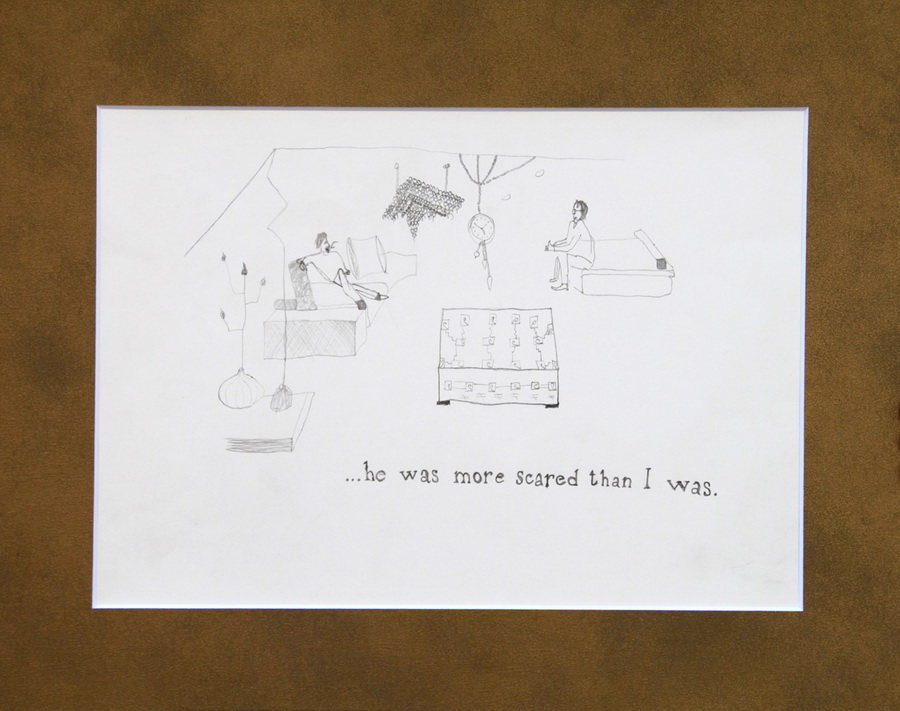 ...he was more scared than I was.